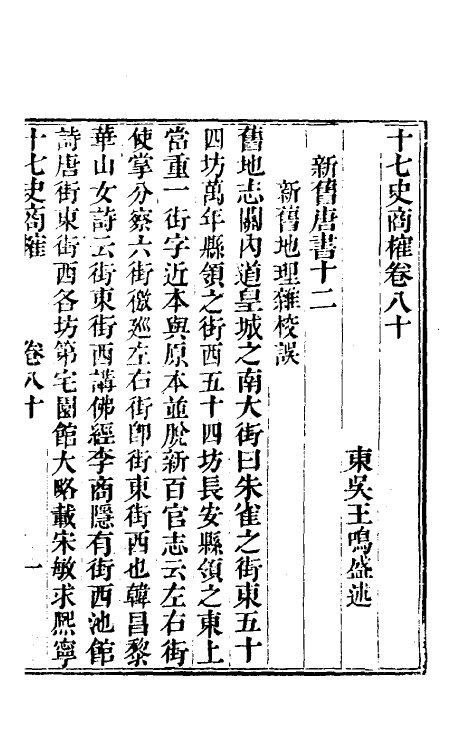 十七史商榷卷八十
東吳王鳴盛述
新舊唐書十二
新舊地理雜校誤
舊地志關內道皇城之南大街曰朱雀之街東五十
四坊萬年縣領之街西五十四坊長安縣領之東上
當重一街字近本與原本並脫新百官志云左右街
使掌分察六街徼廵左右街卽街東街西也韓昌黎
華山女詩云街東街西講佛經李商隱有街西池館
詩唐街東街西各坊第宅園館大略載宋敏求熙寧
十七史商榷
卷八十
一